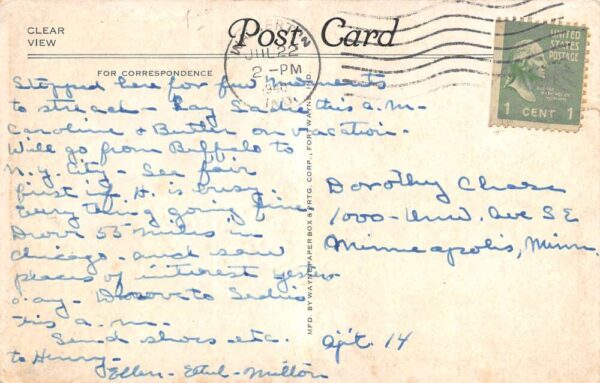 CLEAR
VIEW
Post Card
FOR CORRESPONDENCE
JUL 22
2-PM
1940
IND.
UNITED
STATES
POSTAGE
1 CENT 1
Stopped here for few moments
to strech - Say Sadie this a.m-
Caroline & Butler on vacation.
Will go from Buffalo to
N.y. City - See fair
first if H. is busy.
Every thing going fine
Drove 55 miles in
Chicago - and saw
places of interest yester-
day - Drove to Sadies
this a.m-
Send shoes - etc.
to Henry-
Ellen - Ethel - Milton
MFD. BY WAYNE PAPER BOX & PRTG. CORP., FORT WAYNE, IND.
Dorothy Chase
1000 - Univ. Ave S E
Minneapolis, Minn.
Apt. 14